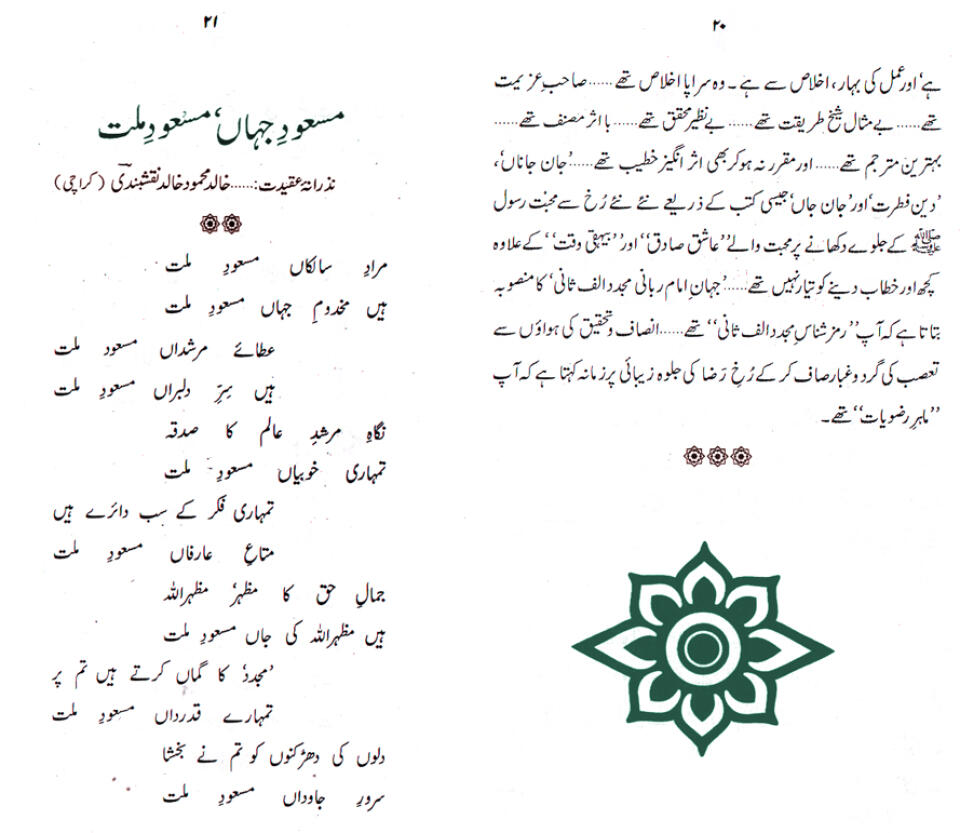 ۲۰
ہے‘ اور عمل کی بہار، اخلاص سے ہے ۔ وہ سراپا اخلاص تھے ...... صاحبِ عزیمت
تھے...... بے مثال شیخِ طریقت تھے ...... بے نظیر محقق تھے ...... با اثر مصنف تھے ......
بہترین مترجم تھے ...... اور مقرر نہ ہوکر بھی اثر انگیز خطیب تھے ...... ’جان جاناں‘،
’دین فطرت‘ اور ’جان جاں‘ جیسی کتب کے ذریعے نئے نئے رُخ سے محبت رسول
ﷺ کے جلوے دکھانے پر محبت والے ’’عاشق صادق‘‘ اور ’’بیہقی وقت‘‘ کے علاوہ
کچھ اور خطاب دینے کو تیار نہیں تھے ...... ’جہانِ امام ربانی مجدد الف ثانی‘ کا منصوبہ
بتاتا ہے کہ آپ ’’رمز شناسِ مجدد الف ثانی‘‘ تھے ...... انصاف و تحقیق کی ہواؤں سے
تعصب کی گرد و غبار صاف کر کے رُخِ رَضا کی جلوہ زیبائی پر زمانہ کہتا ہے کہ آپ
’’ماہرِ رضویات‘‘ تھے ۔
۲۱
مسعودِ جہاں‘ مسعودِ ملت
نذرانۂ عقیدت: ...... خالد محمود خالد نقشبندی (کراچی)
مرادِ سالکاں مسعودِ ملت
ہیں مخدومِ جہاں مسعودِ ملت
عطائے مرشداں مسعود ملت
ہیں سِرِّ دلبراں مسعودِ ملت
نگاہِ مرشدِ عالم کا صدقہ
تمہاری خوبیاں مسعودِ ملت
تمہاری فکر کے سب دائرے ہیں
متاعِ عارفاں مسعودِ ملت
جمالِ حق کا مظہر‘ مظہراللہ
ہیں مظہراللہ کی جاں مسعودِ ملت
’مجدد‘ کا گماں کرتے ہیں تم پر
تمہارے قدرداں مسعودِ ملت
دلوں کی دھڑکنوں کو تم نے بخشا
سرورِ جاوداں مسعودِ ملت